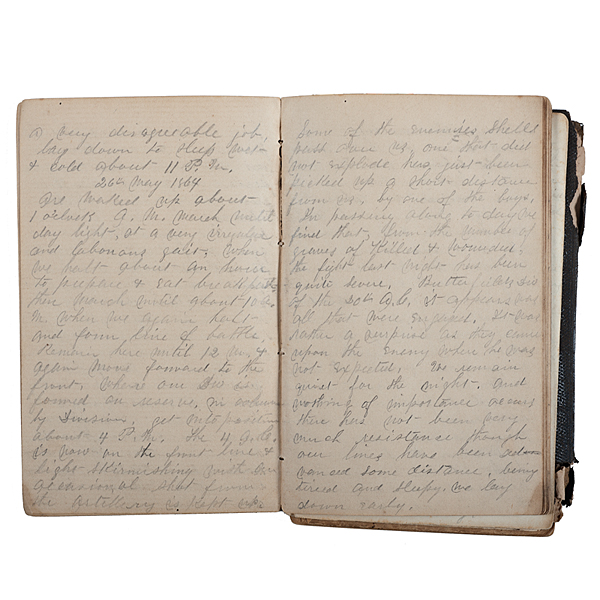 a very disagreeable job,
lay down to sleep wet
& cold about 11 P.M.
26th May 1864
Are waked up about
1 o'clock A.M. march until
day light, at a very irregular
and laborous gait, when
we halt about an hour
to prepare & eat breakfast
then march until about 10 A.
M. when we again halt
and form line of battle,
Remain here until 12 M. &
again move forward to the
front. Where our Div is
formed on reserve, in column
by Division, get into position
about 4 P.M. The 4 A.C.
is now on the front line &
light skirmishing with an
occasional shot from
the artillery is kept up.
Some of the enemies shells
pass over us, one that did
not explode has just been
picked up a short distance
from us, by one of the boys.
In passing along to day we
find that, from the number of
graves of Killed & wounded
the fight last night has been
quite severe. Butterfields Div
of the 20th A.C. it appears was
all that were engaged. It was
rather a surprise as they came
upon the enemy when he was
not expected. We remain
quiet for the night, and
nothing of importance occurs
there has not been very
much resistance though
our lines have been ad-
vanced some distance, being
tired and sleepy we lay
down early.